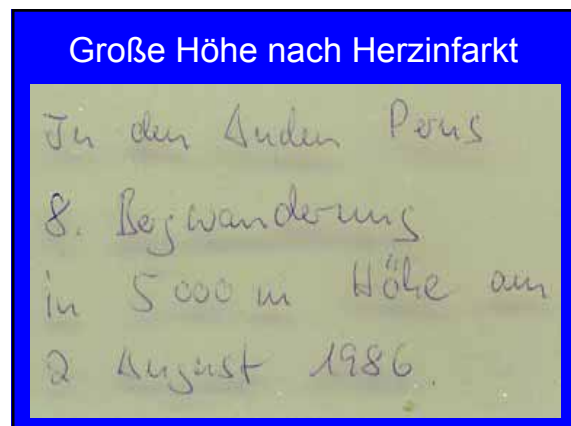 Große Höhe nach Herzinfarkt
In den Anden Perus
8. Bergwanderung
in 5000 m Höhe am
2 August 1986.